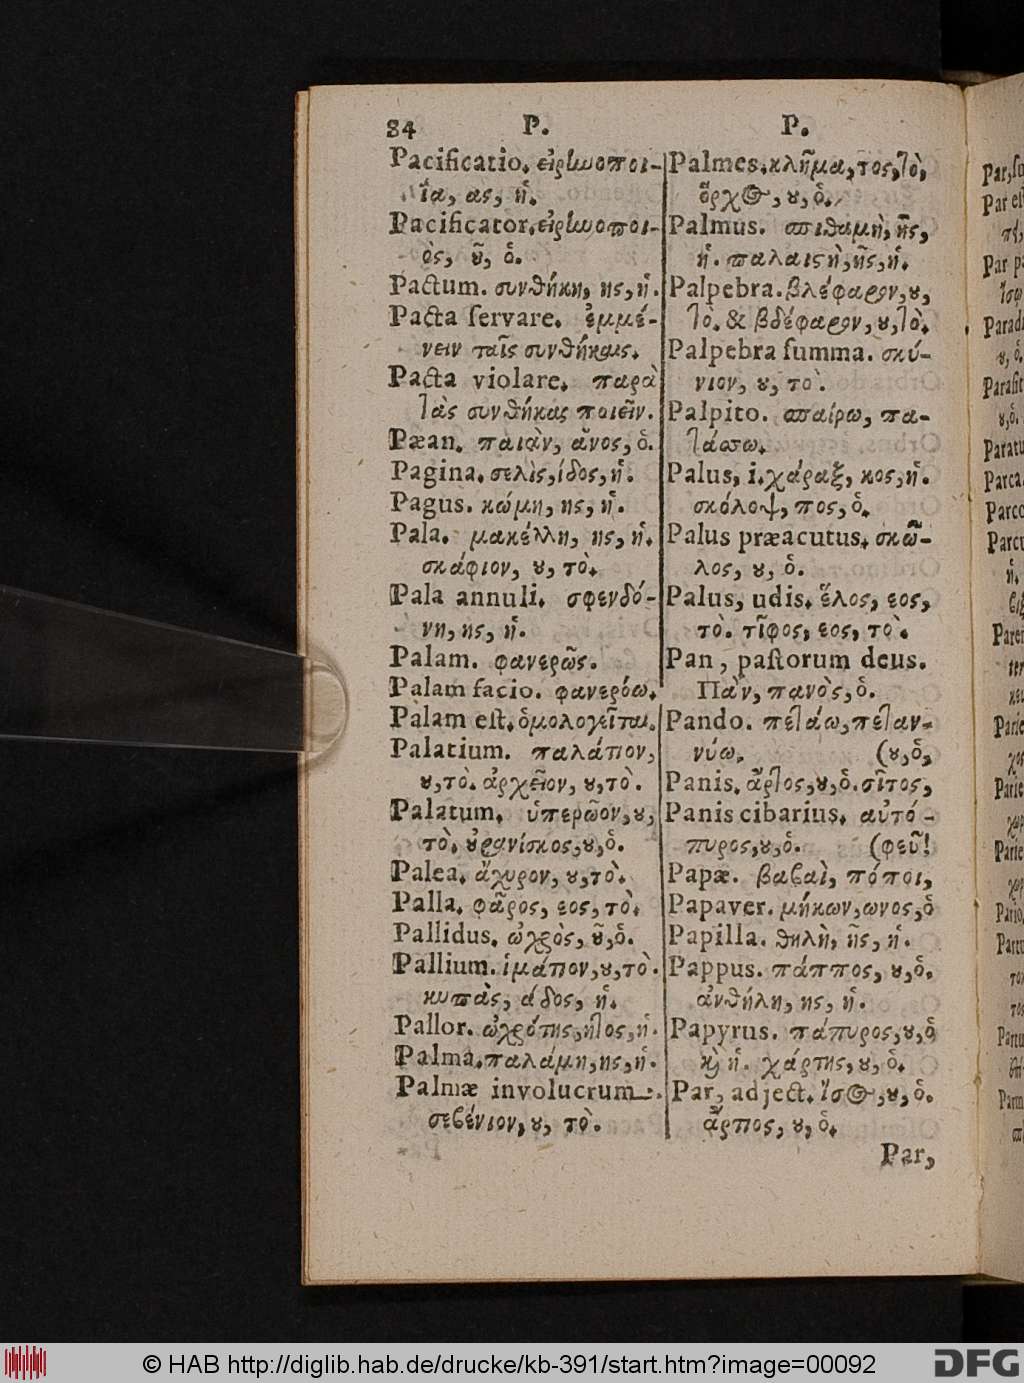 84 P. P.
Pacificatio. εἰρηνοποι-
ΐα, ας, ἡ.
Pacificator. εἰρηνοποι-
ὸς, ȣ͂, ὁ.
Pactum. συνθήκη, ης, ἡ.
Pacta servare. ἐμμέ-
νειν ταῖς συνθήκαις.
Pacta violare. παρὰ
τὰς συνθήκας ποιεῖν.
Pæan. παιὰν, ᾶνος, ὁ.
Pagina. σελὶς, ίδος, ἡ.
Pagus. κώμη, ης, ἡ.
Pala. μακέλλη, ης, ἡ.
σκάφιον, ȣ, τὸ.
Pala annuli. σφενδό-
νη, ης, ἡ.
Palam. φανερῶς.
Palam facio. φανερόω.
Palam est. ὁμολογεῖται.
Palatium. παλάτιον,
ȣ, τὸ. ἀρχεῖον, ȣ, τὸ.
Palatum. ὑπερῶον, ȣ,
τὸ. ȣ̓ρανίσκος, ȣ, ὁ.
Palea. ἄχυρον, ȣ, τὸ.
Palla. φᾶρος, εος, τὸ.
Pallidus. ὠχρὸς, ȣ͂, ὁ.
Pallium. ἱμάτιον, ȣ, τὸ.
κυπὰς, άδος, ἡ.
Pallor. ὠχρότης, ητος, ἡ.
Palma. παλάμη, ης, ἡ.
Palmæ involucrum.
σεβένιον, ȣ, τὸ.
Palmes. κλῆμα, τος, τὸ,
ὄρχος, ȣ, ὁ.
Palmus. σπιθαμὴ, ῆς,
ἡ. παλαιστὴ, ῆς, ἡ.
Palpebra. βλέφαρον, ȣ,
τὸ. & βδέφαρον, ȣ, τὸ.
Palpebra summa. σκύ-
νιον, ȣ, τὸ.
Palpito. σπαίρω, πα-
τάσσω.
Palus, i. χάραξ, κος, ἡ.
σκόλοψ, πος, ὁ.
Palus præacutus. σκῶ-
λος, ȣ, ὁ.
Palus, udis. ἕλος, εος,
τὸ. τῖφος, εος, τὸ.
Pan, pastorum deus.
Πὰν, πανὸς, ὁ.
Pando. πετάω, πεταν-
νύω. (ȣ, ὁ,
Panis. ἄρτος, ȣ, ὁ. σῖτος,
Panis cibarius. αὐτό-
πυρος, ȣ, ὁ. (φεῦ!
Papæ. βαβαὶ, πόποι,
Papaver. μήκων, ωνος, ὁ
Papilla. θηλὴ, ῆς, ἡ.
Pappus. πάππος, ȣ, ὁ.
ἀνθήλη, ης, ἡ.
Papyrus. πάπυρος, ȣ, ὁ
ϗ ἡ. χάρτης, ȣ, ὁ.
Par, adject. ἴσος, ȣ, ὁ.
ἄρτιος, ȣ, ὁ.
Par,
© HAB http://diglib.hab.de/drucke/kb-391/start.htm?image=00092
DFG